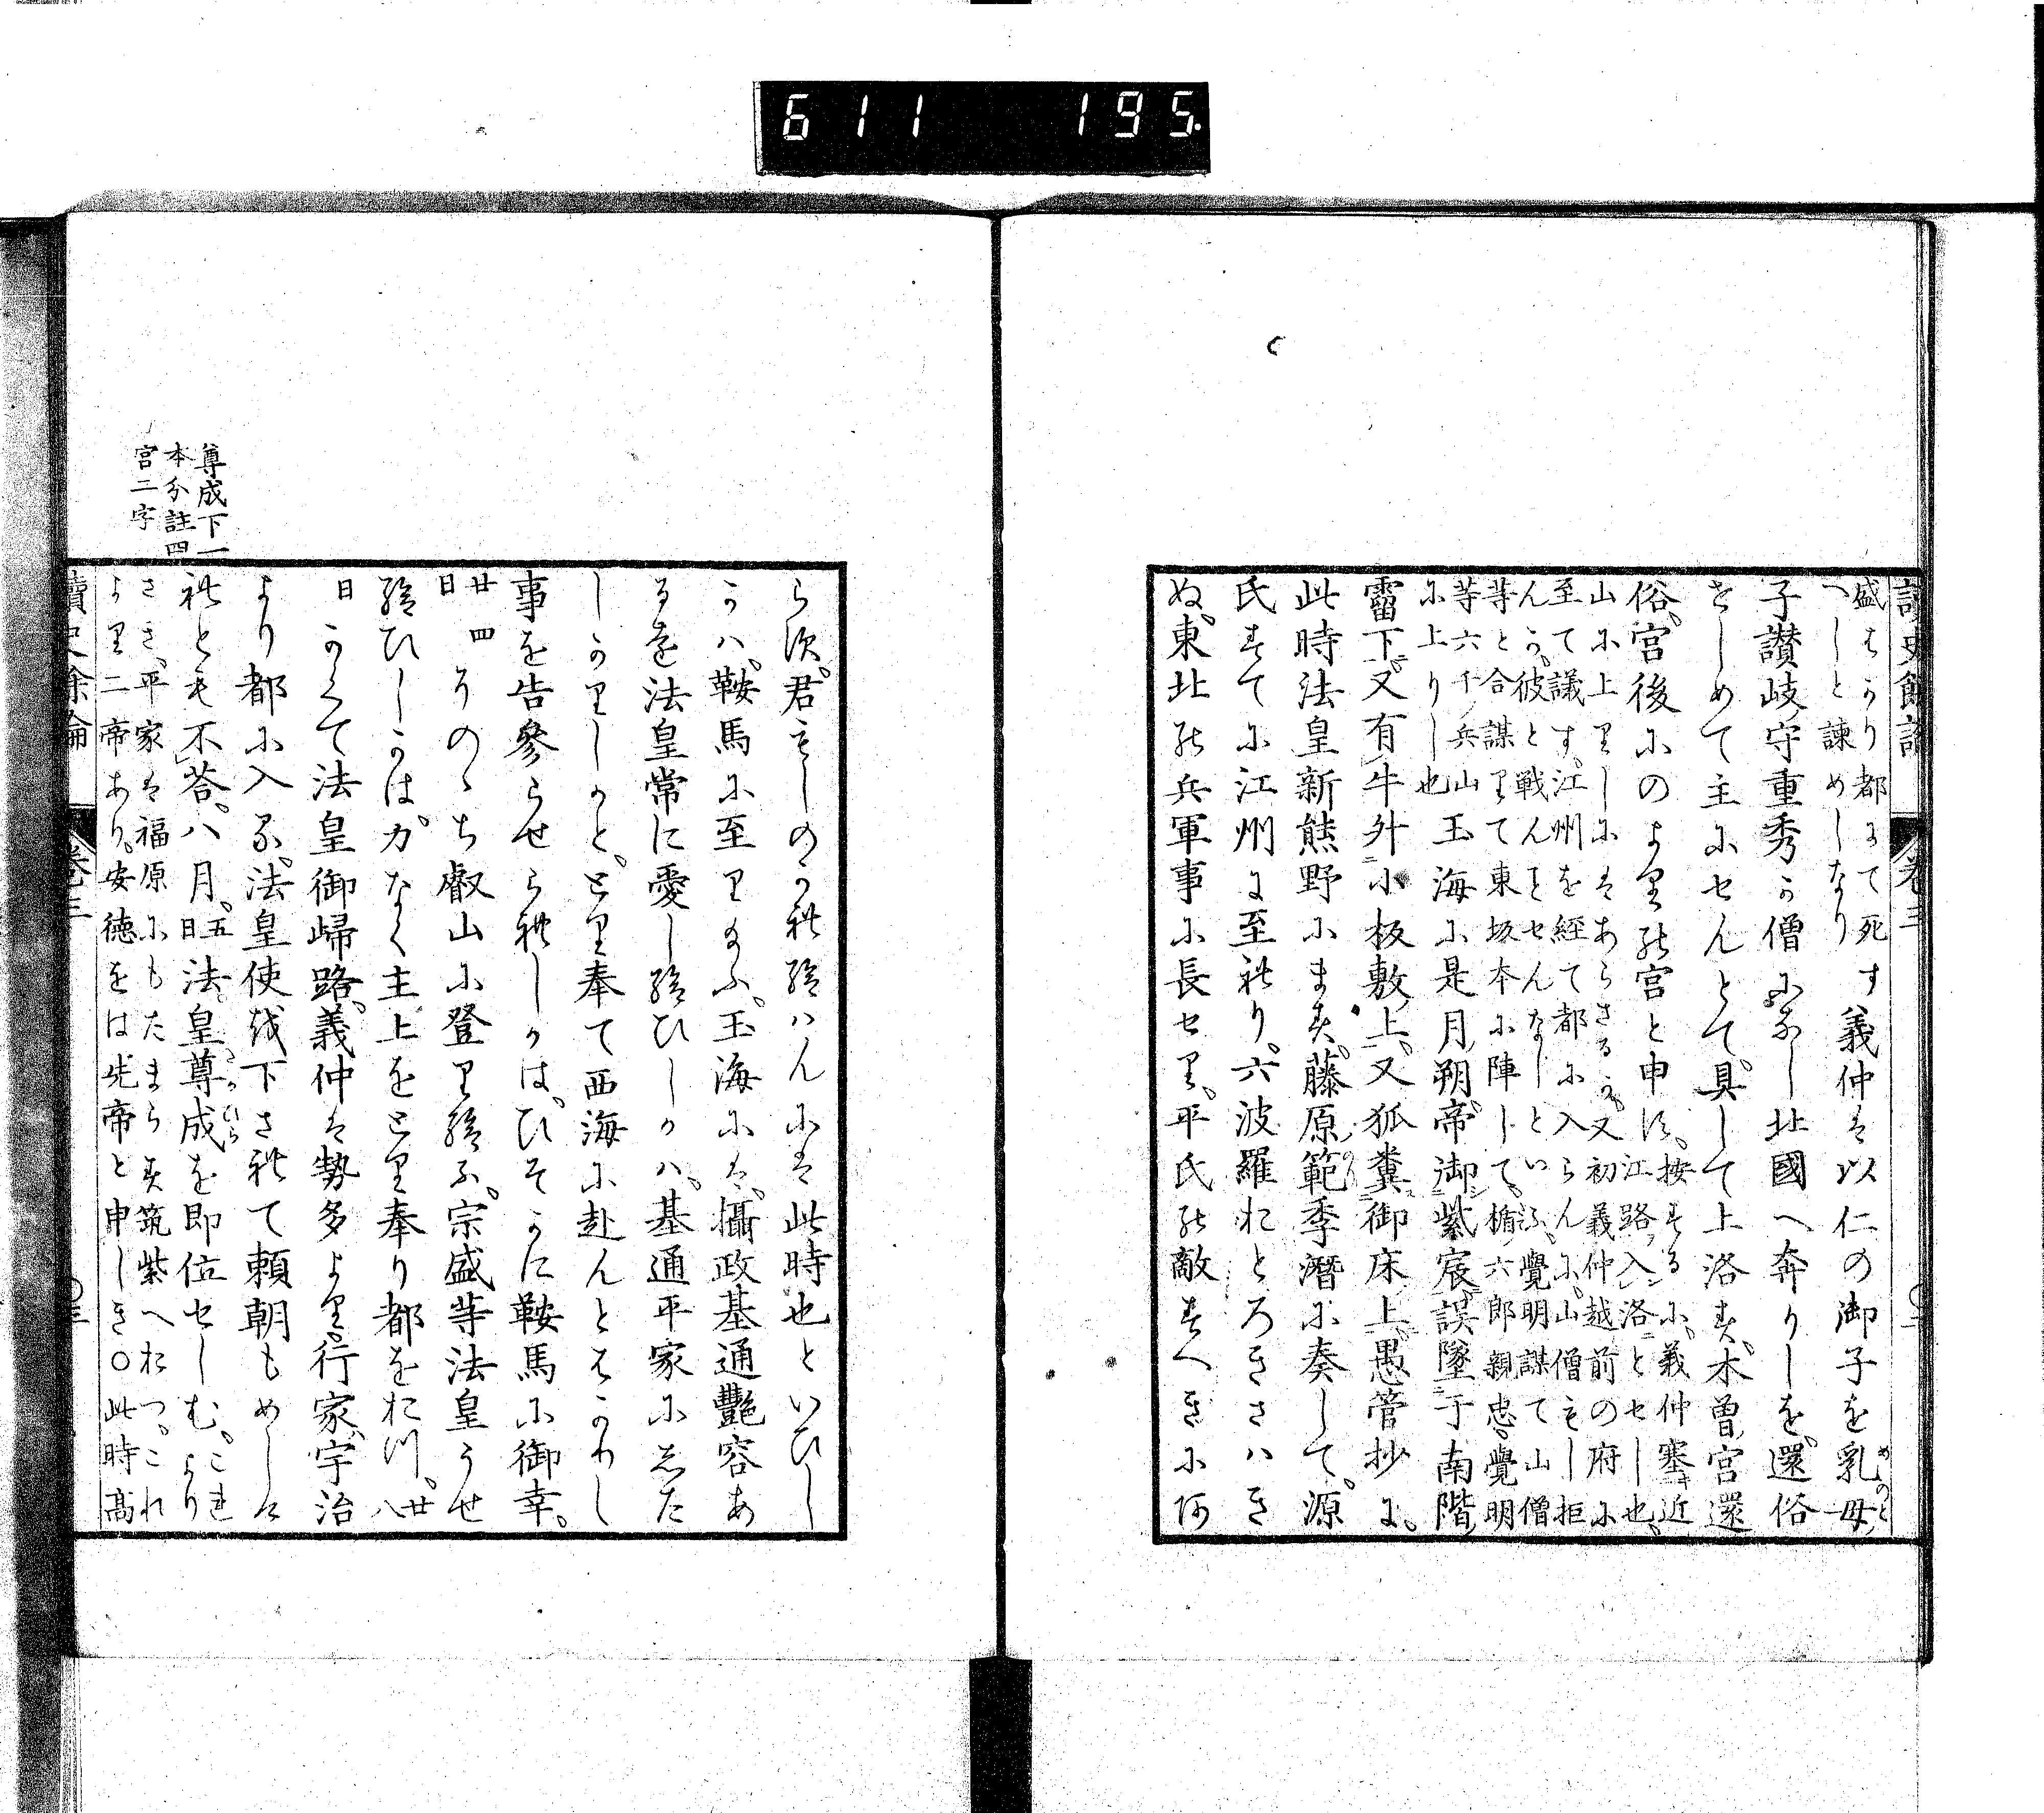 611 195.
讀史餘論 卷三
盛はかり都にて死す義仲は以仁の御子を乳母
へしと諫めしなり
子讃岐守重秀か僧になし北國へ奔りしを還俗
せしめて主にせんとて具して上洛す木曽宮還
俗宮後にのより
の宮と申す按するに義仲塞近
江路入洛とせし也
山に上りしにはあらさるか又初義仲越前の府に
至て議す江州を経て都に入らんに山僧もし拒
んか彼と戦んをせんなしといふ覺明謀て山僧
等と合謀りて東坂本に陣して楯六郎親忠覺明
等六千兵山
に上りし也
玉海に是月朔帝御紫宸誤墜于南階
霤下又有牛外小板敷上又狐糞御床上愚管抄に
此時法皇新熊野にます藤原範季潛に奏して源
氏すてに江州に至れり六波羅おとろきさハき
ぬ東北の兵軍事に長せり平氏の敵すへきにあ
らす君もしのかれ給ハんには此時也といひし
かハ鞍馬に至り給ふ玉海には攝政基通艷容あ
るを法皇常に愛し給ひしかハ基通平家にした
しかりしかととり奉て西海に赴んとはかりし
事を告參らせられしかはひそかに鞍馬に御幸
廿四
日
そのゝち叡山に登り給ふ宗盛等法皇うせ
給ひしかは力なく主上をとり奉り都をおつ廿八
日
かくて法皇御歸路義仲は勢多より行家宇治
より都に入る法皇使を下されて頼朝もめしけ
れとも不荅八月五
日法皇尊成を即位せしむこれ
より
さき平家は福原にもたまらす筑紫へおつこれ
より二帝あり安徳をは先帝と申しき○此時髙
尊成下一
本分註四
宮二字
讀史餘論 卷三